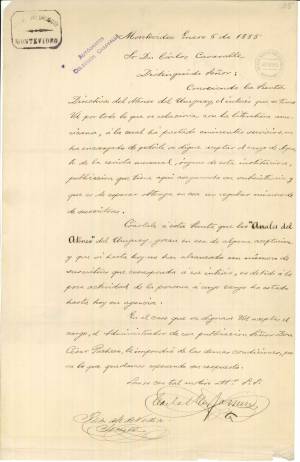 MONTEVIDEO
Montevideo Enero 8 de 1885
Sr Dn Carlos Casavalle
Distinguido Señor:
Conociendo la Junta
Directiva del Ateneo del Uruguay el interés que se toma
Vd por todo lo que se relaciona con la literatura ame-
ricana, á la cual ha prestado eminentes servicios, me
ha encargado de pedirle se digne aceptar el cargo de Agen-
te de la revista mensual, órgano de esta institución,
publicacion que tiene aquí asegurada su existencia y
que es de esperar obtenga en esa un regular número
de suscritores.
Constale á esta Junta que los "Anales del
Ateneo" del Uruguay, gozan en esa de alguna aceptacion
y que si hasta hoy no han alcanzado un número de
suscritores que corresponda á su interés, es debido á la
poca actividad de la persona á cuyo cargo ha estado
hasta hoy su agencia.
En el caso que se dignara Vd aceptar el
cargo, el Administrador de esa publicacion Señor Don
César Pacheco, le impondrá de las demas condiciones, por
lo que quedamos esperando su respuesta.
Saluda